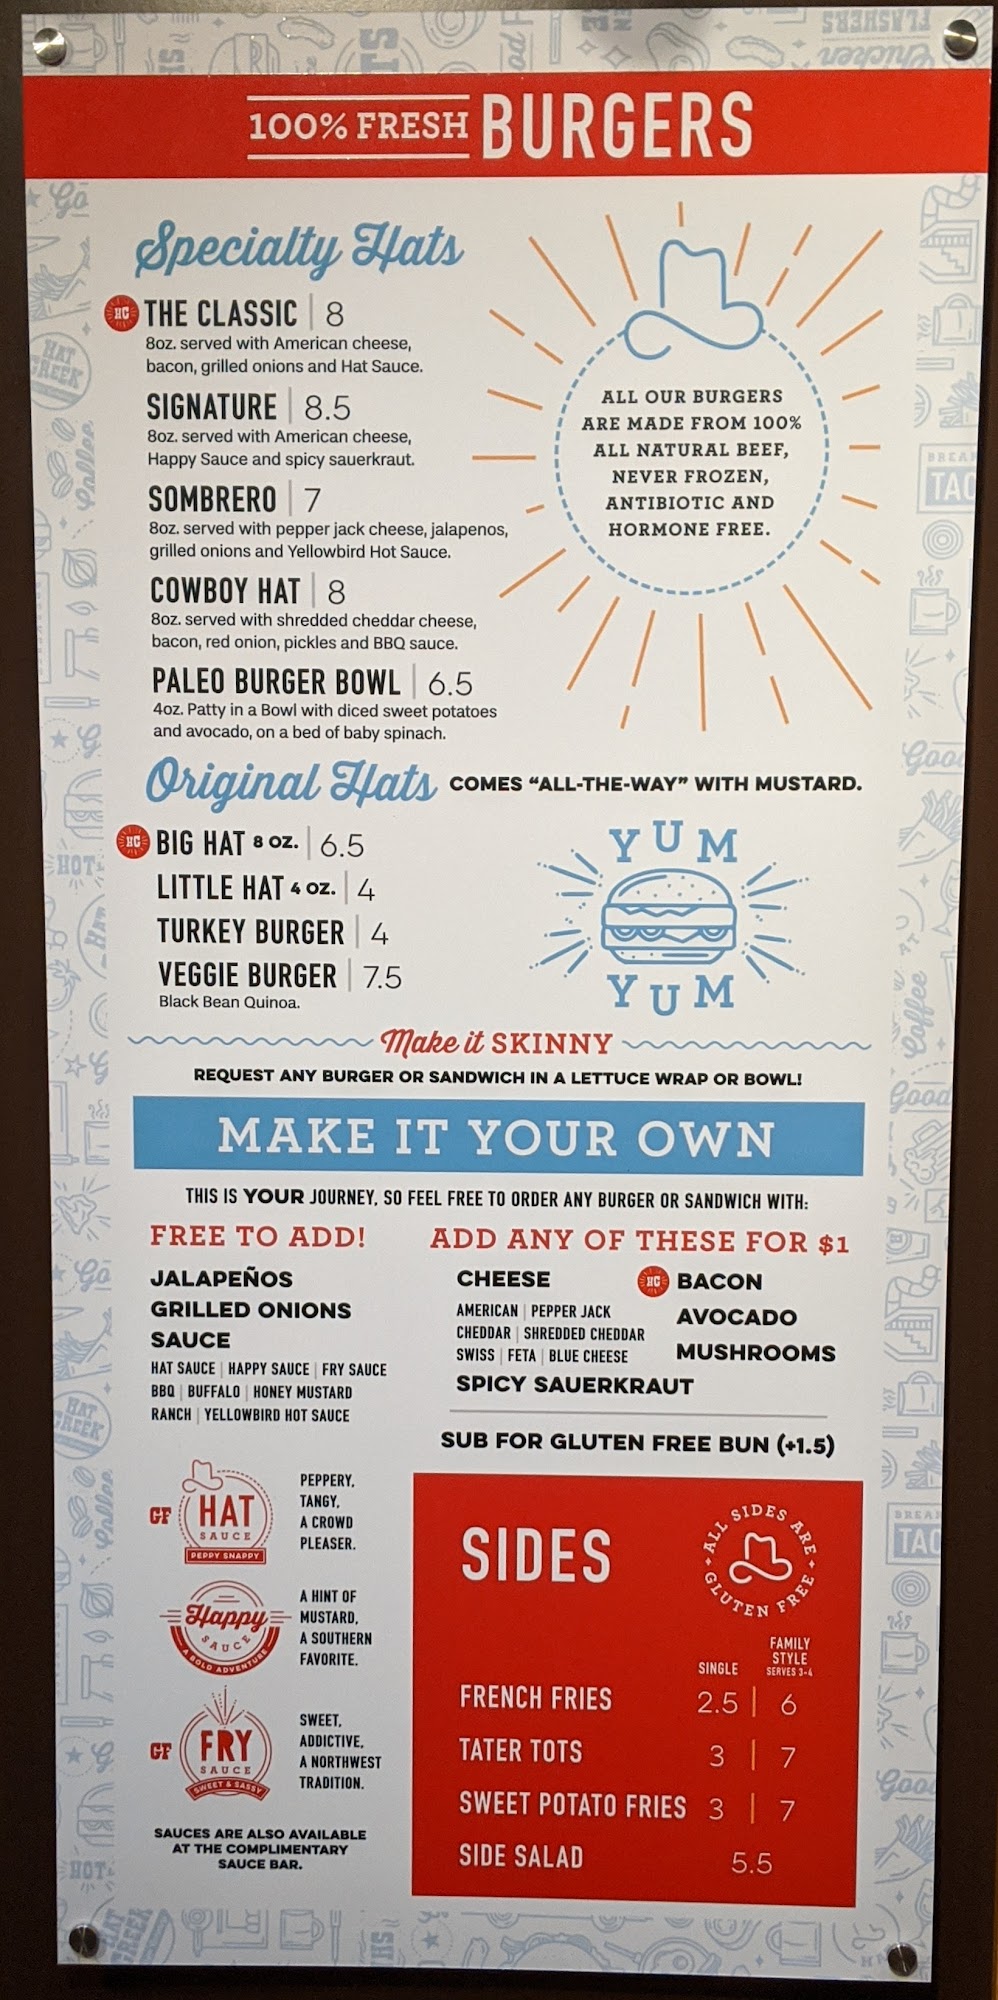 100% FRESH BURGERS
Specialty Hats
HC THE CLASSIC | 8
8oz. served with American cheese,
bacon, grilled onions and Hat Sauce.
SIGNATURE | 8.5
8oz. served with American cheese,
Happy Sauce and spicy sauerkraut.
SOMBRERO | 7
8oz. served with pepper jack cheese, jalapenos,
grilled onions and Yellowbird Hot Sauce.
COWBOY HAT | 8
8oz. served with shredded cheddar cheese,
bacon, red onion, pickles and BBQ sauce.
PALEO BURGER BOWL | 6.5
4oz. Patty in a Bowl with diced sweet potatoes
and avocado, on a bed of baby spinach.
ALL OUR BURGERS
ARE MADE FROM 100%
ALL NATURAL BEEF,
NEVER FROZEN,
ANTIBIOTIC AND
HORMONE FREE.
Original Hats COMES “ALL-THE-WAY” WITH MUSTARD.
HC BIG HAT 8 OZ. | 6.5
LITTLE HAT 4 OZ. | 4
TURKEY BURGER | 4
VEGGIE BURGER | 7.5
Black Bean Quinoa.
YUM
YUM
Make it SKINNY
REQUEST ANY BURGER OR SANDWICH IN A LETTUCE WRAP OR BOWL!
MAKE IT YOUR OWN
THIS IS YOUR JOURNEY, SO FEEL FREE TO ORDER ANY BURGER OR SANDWICH WITH:
FREE TO ADD!
JALAPEÑOS
GRILLED ONIONS
SAUCE
HAT SAUCE | HAPPY SAUCE | FRY SAUCE
BBQ | BUFFALO | HONEY MUSTARD
RANCH | YELLOWBIRD HOT SAUCE
ADD ANY OF THESE FOR $1
CHEESE
AMERICAN | PEPPER JACK
CHEDDAR | SHREDDED CHEDDAR
SWISS | FETA | BLUE CHEESE
SPICY SAUERKRAUT
HC BACON
AVOCADO
MUSHROOMS
SUB FOR GLUTEN FREE BUN (+1.5)
GF HAT
SAUCE
PEPPY SNAPPY
PEPPERY,
TANGY,
A CROWD
PLEASER.
Happy
SAUCE
A BOLD ADVENTURE
A HINT OF
MUSTARD,
A SOUTHERN
FAVORITE.
GF FRY
SAUCE
SWEET & SASSY
SWEET,
ADDICTIVE,
A NORTHWEST
TRADITION.
SAUCES ARE ALSO AVAILABLE
AT THE COMPLIMENTARY
SAUCE BAR.
SIDES
ALL SIDES ARE
GLUTEN FREE
SINGLE
FAMILY
STYLE
SERVES 3-4
FRENCH FRIES 2.5 | 6
TATER TOTS 3 | 7
SWEET POTATO FRIES 3 | 7
SIDE SALAD 5.5